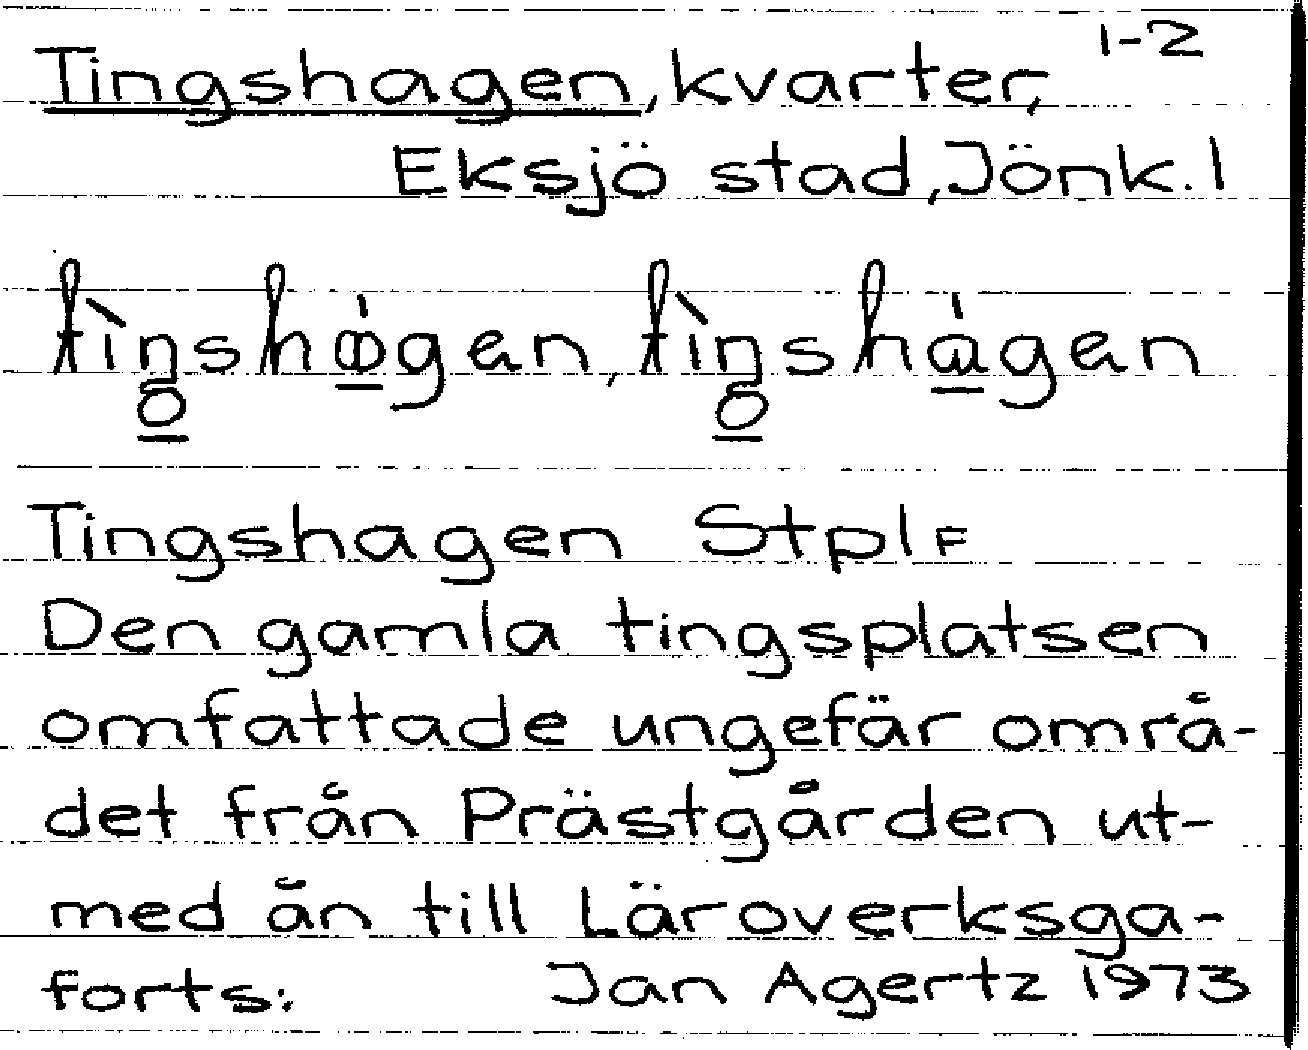 1-2
Tingshagen, kvarter,
Eksjö stad, Jönk. l
Tingshagen Stpl F
Den gamla tingsplatsen
omfattade ungefär områ-
det från Prästgården ut-
med ån till Läroverksga-
forts: Jan Agertz 1973